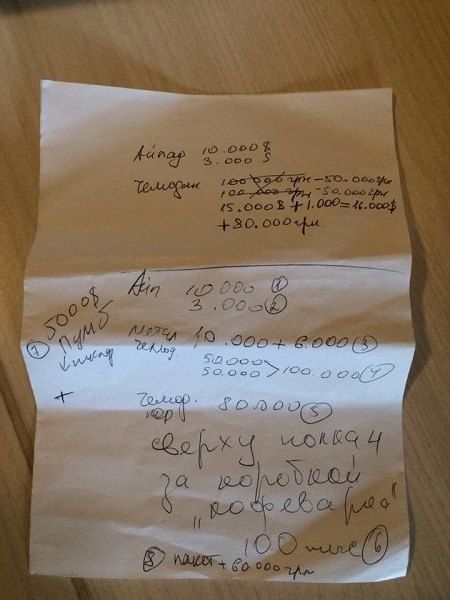 Айпад 10.000$
3.000$
Чемодан 100 000 грн -50.000грн
100.000грн -50.000грн
15.000$ + 1.000 = 16.000$
+80.000грн.
Aip 10.000 ①
3.000 ②
⑦ 5000$
Пумб
+
метал 10.000 + 6.000 ③
чемод.
50.000
50.000 > 100.000 ④
Чемод. 80.000 ⑤
кор
сверху полка 4
за коробкой
"кофеварка"
100 тыс ⑥
⑧ пакет + 60000грн